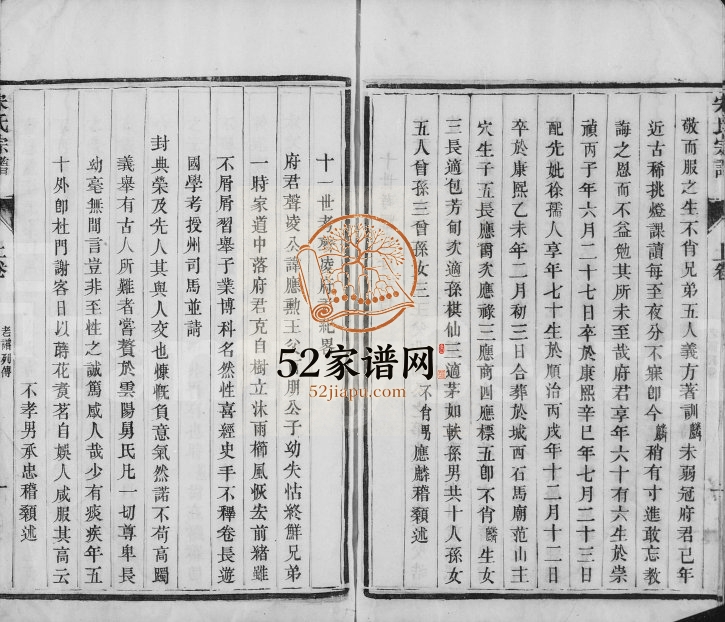 敬而服之生不肖兄弟五人義方著訓麟未弱冠府君已年
近古稀挑燈課讀每至夜分不寐卽今麟稍有寸進敢忘教
誨之恩而不益勉其所未至哉府君享年六十有六生於崇
禎丙子年六月二十七日卒於康熙辛巳年七月二十三日
配先妣徐孺人享年七十生於順治丙戌年十二月十二日
卒於康熙乙未年二月初三日合葬於城西石馬廟范山主
穴生子五長應爵次應祿三應商四應標五卽不肖麟生女
三長適包芳旬次適孫棋仙三適茅如軼孫男共十人孫女
五人曾孫三曾孫女三
不肖男應麟稽顙述
十一世考
府君聲凌公諱應勲王父
朋公子幼失怙終鮮兄弟
一時家道中落府君克自樹立沐雨櫛風恢宏前緒雖
不屑屑習舉子業博科名然性喜經史手不釋卷長遊
國學考授州司馬並請
封典榮及先人其與人交也慷慨負意氣然諾不苟高躅
義舉有古人所難者嘗贅於雲陽舅氏凡一切尊卑長
幼毫無間言豈非至性之誠篤感人哉少有痰疾年五
十外卽杜門謝客日以蒔花煑茗自娛人咸服其高云
不孝男承忠稽顙述
宗譜
上卷
老譜列傳
十
52家谱网
52jiapu.com